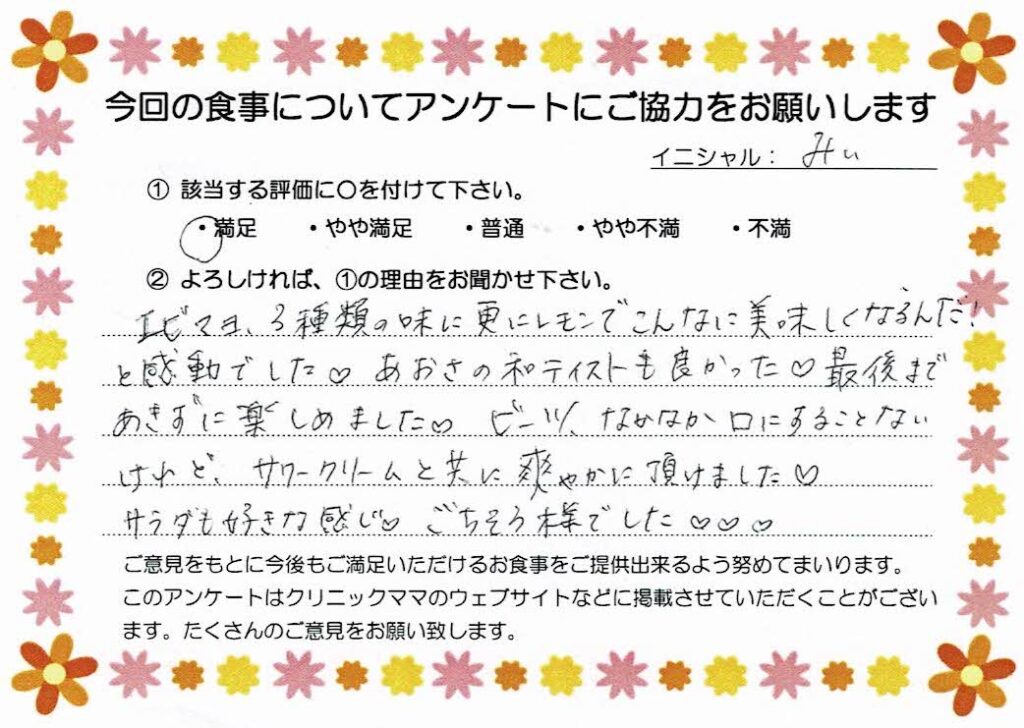 今回の食事についてアンケートにご協力をお願いします
イニシャル： みぃ
① 該当する評価に○を付けて下さい。
・満足 ・やや満足 ・普通 ・やや不満 ・不満
② よろしければ、①の理由をお聞かせ下さい。
エビマヨ、3種類の味に更にレモンでこんなに美味しくなるんだ!
と感動でした♡ あおさの和テイストも良かった♡最後まで
あきずに楽しめました♡ ビーツ、なかなか口にすることない
けれど、サワークリームと共に爽やかに頂けました♡
サラダも好きな感じ♡ ごちそう様でした♡♡♡
ご意見をもとに今後もご満足いただけるお食事をご提供出来るよう努めてまいります。
このアンケートはクリニックママのウェブサイトなどに掲載させていただくことがござい
ます。たくさんのご意見をお願い致します。